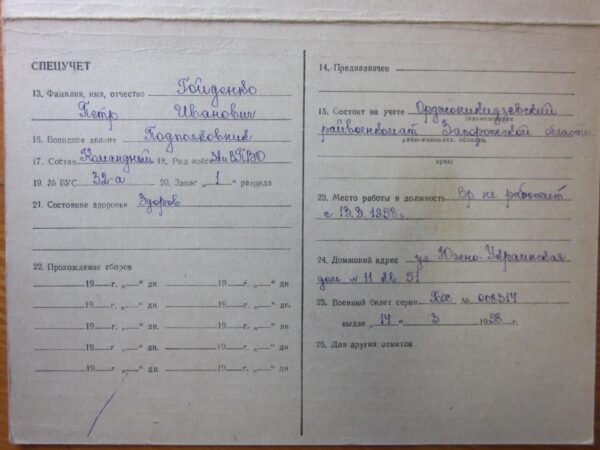 СПЕЦУЧЕТ
13. Фамилия, имя, отчество Гойденко
Петр Иванович
16. Воинское звание Подполковник
17. Состав Командный 18. Род войск ЗА и ПВО
19. № ВУС 32-а 20. Запас „1“ разряда
21. Состояние здоровья Здоров
22. Прохождение сборов
19 г. „ “ дн. 19 г. „ “ дн.
19 г. „ “ дн. 19 г. „ “ дн.
19 г. „ “ дн. 19 г. „ “ дн.
19 г. „ “ дн. 19 г. „ “ дн.
19 г. „ “ дн. 19 г. „ “ дн
14. Предназначен
15. Состоит на учете Орджоникидзевский
(наименование
райвоенкомат Запорожской области
райвоенкомата, области,
края)
23. Место работы и должность вр не работает
с 13.3.1958 г.
24. Домашний адрес ул Южно-Украинская
дом № 11 кв 51
25. Военный билет серии № 002317
выдан „14“ 3 1958 г.
26. Для других отметок